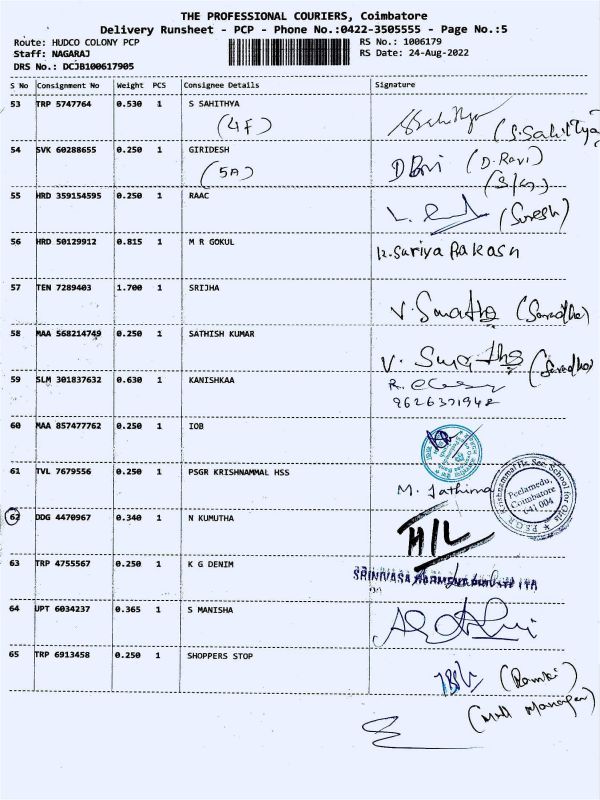 THE PROFESSIONAL COURIERS, Coimbatore
Delivery Runsheet - PCP - Phone No.:0422-3505555 - Page No.:5
Route: HUDCO COLONY PCP
Staff: NAGARAJ
DRS No.: DCJB100617905
RS No.: 1006179
RS Date: 24-Aug-2022
S No Consignment No Weight PCS Consignee Details Signature
53 TRP 5747764 0.530 1 S SAHITHYA
(4F)
(S.Sahithya)
54 SVK 60288655 0.250 1 GIRIDESH
(5A)
(D.Ravi)
55 HRD 359154595 0.250 1 RAAC
(Suresh)
56 HRD 50129912 0.815 1 M R GOKUL
K.Suriya Prakash
57 TEN 7289403 1.700 1 SRIJHA
V. Swatha (Saradha)
58 MAA 568214749 0.250 1 SATHISH KUMAR
V. Swatha (Saradha)
59 SLM 301837632 0.630 1 KANISHKAA
9626371942
60 MAA 857477762 0.250 1 IOB
61 TVL 7679556 0.250 1 PSGR KRISHNAMMAL HSS
M. Fathima
P.S.G.R. Krishnammal Hr. Sec. School for Girls
Peelamedu,
Coimbatore
641 004
62 DDG 4470967 0.340 1 N KUMUTHA
H/L
63 TRP 4755567 0.250 1 K G DENIM
SRINIVASA
64 UPT 6034237 0.365 1 S MANISHA
65 TRP 6913458 0.250 1 SHOPPERS STOP
(Ramki)
(Mall Manager)